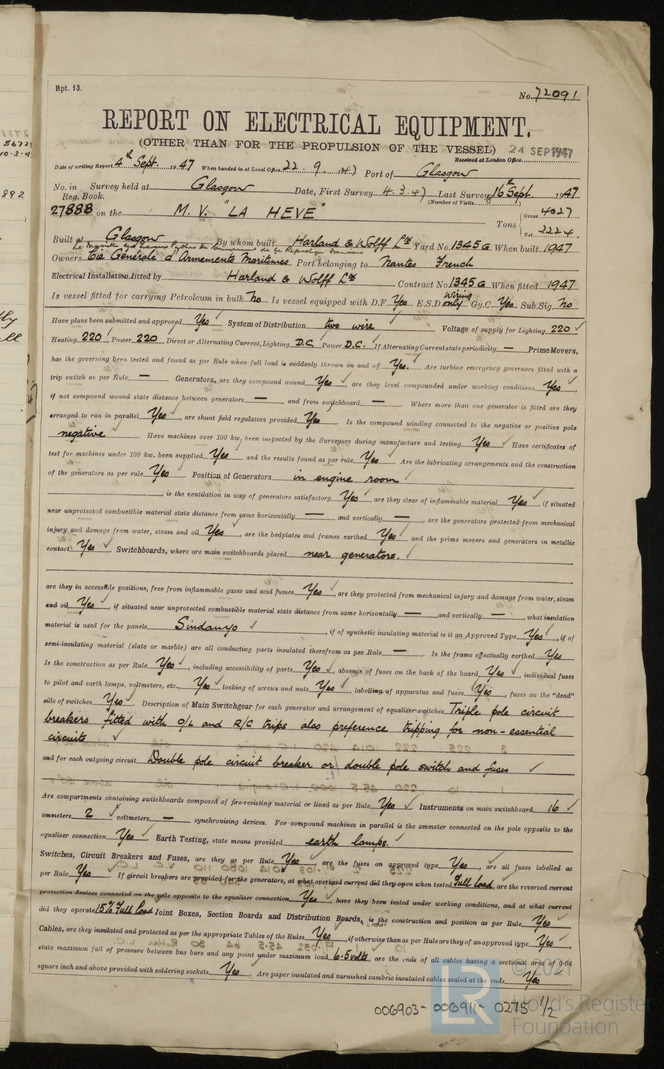 Rpt. 13.
No. 72091
REPORT ON ELECTRICAL EQUIPMENT.
(OTHER THAN FOR THE PROPULSION OF THE VESSEL)
24 SEP 1947
Date of writing Report 4th Sept. 1947 When handed in at Local Office 22. 9. 1947 Port of Glasgow Received at London Office
No. in Reg. Book. Survey held at Glasgow Date, First Survey 4. 3. 47 Last Survey 16th Sept. 1947
(Number of Visits)
27888 on the M. V. "LA HEVE" Tons Gross 4027 Net 2224
Built at Glasgow By whom built Harland & Wolff Ltd Yard No. 1345G When built 1947
Owners Cie Générale d'Armements Maritimes Port belonging to Nantes French
Electrical Installation fitted by Harland & Wolff Ltd Contract No. 1345G When fitted 1947
Is vessel fitted for carrying Petroleum in bulk No Is vessel equipped with D.F. Yes E.S.D. Wiring only Gy.C. Yes Sub.Sig. No
Have plans been submitted and approved Yes System of Distribution two wire Voltage of supply for Lighting 220
Heating 220 Power 220 Direct or Alternating Current, Lighting D.C. Power D.C. If Alternating Current state periodicity — Prime Movers,
has the governing been tested and found as per Rule when full load is suddenly thrown on and off Yes. Are turbine emergency governors fitted with a
trip switch as per Rule — Generators, are they compound wound Yes are they level compounded under working conditions Yes
if not compound wound state distance between generators — and from switchboard — Where more than one generator is fitted are they
arranged to run in parallel Yes, are shunt field regulators provided Yes Is the compound winding connected to the negative or positive pole
negative Have machines over 100 kw. been inspected by the Surveyors during manufacture and testing Yes Have certificates of
test for machines under 100 kw. been supplied Yes and the results found as per rule Yes Are the lubricating arrangements and the construction
of the generators as per rule Yes Position of Generators in engine room
is the ventilation in way of generators satisfactory Yes are they clear of inflammable material Yes if situated
near unprotected combustible material state distance from same horizontally — and vertically — are the generators protected from mechanical
injury and damage from water, steam and oil Yes are the bedplates and frames earthed Yes and the prime movers and generators in metallic
contact Yes Switchboards, where are main switchboards placed near generators.
are they in accessible positions, free from inflammable gases and acid fumes Yes, are they protected from mechanical injury and damage from water, steam
and oil Yes, if situated near unprotected combustible material state distance from same horizontally — and vertically —, what insulation
material is used for the panels Sindanyo, if of synthetic insulating material is it an Approved Type Yes, if of
semi-insulating material (slate or marble) are all conducting parts insulated therefrom as per Rule — Is the frame effectually earthed Yes
Is the construction as per Rule Yes, including accessibility of parts Yes, absence of fuses on the back of the board Yes, individual fuses
to pilot and earth lamps, voltmeters, etc., Yes locking of screws and nuts Yes labelling of apparatus and fuses Yes, fuses on the "dead"
side of switches Yes Description of Main Switchgear for each generator and arrangement of equaliser switches Triple pole circuit
breakers fitted with O/L and R/C trips also preference tripping for non-essential
circuits
and for each outgoing circuit Double pole circuit breaker or double pole switch and fuses
Are compartments containing switchboards composed of fire-resisting material or lined as per Rule Yes Instruments on main switchboard 16
ammeters 2 voltmeters — synchronising devices. For compound machines in parallel is the ammeter connected on the pole opposite to the
equaliser connection Yes Earth Testing, state means provided earth lamps.
Switches, Circuit Breakers and Fuses, are they as per Rule Yes are the fuses an approved type Yes are all fuses labelled as
per Rule Yes If circuit breakers are provided for the generators, at what overload current did they open when tested Full load, are the reversed current
protection devices connected on the pole opposite to the equaliser connection Yes, have they been tested under working conditions, and at what current
did they operate 15% Full load Joint Boxes, Section Boards and Distribution Boards, is the construction and position as per Rule Yes
Cables, are they insulated and protected as per the appropriate Tables of the Rules Yes, if otherwise than as per Rule are they of an approved type Yes
state maximum fall of pressure between bus bars and any point under maximum load 6.5 volts are the ends of all cables having a sectional area of 0.04
square inch and above provided with soldering sockets Yes Are paper insulated and varnished cambric insulated cables sealed at the ends Yes
006903-006911-0275 1/2
© 2021
Lloyd's Register
Foundation